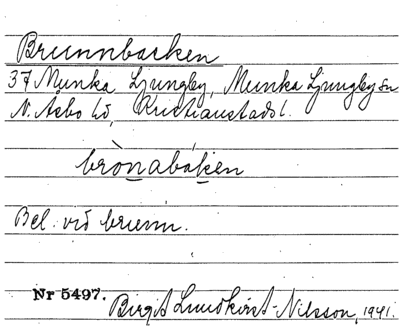 Brunnbacken
37 Munka Ljungby, Munka Ljungby sn
N. Åsbo hd, Kristianstads l.
brònabáken
Bel. vid brunn.
Nr 5497. Birgit Lundkvist-Nilsson, 1941.